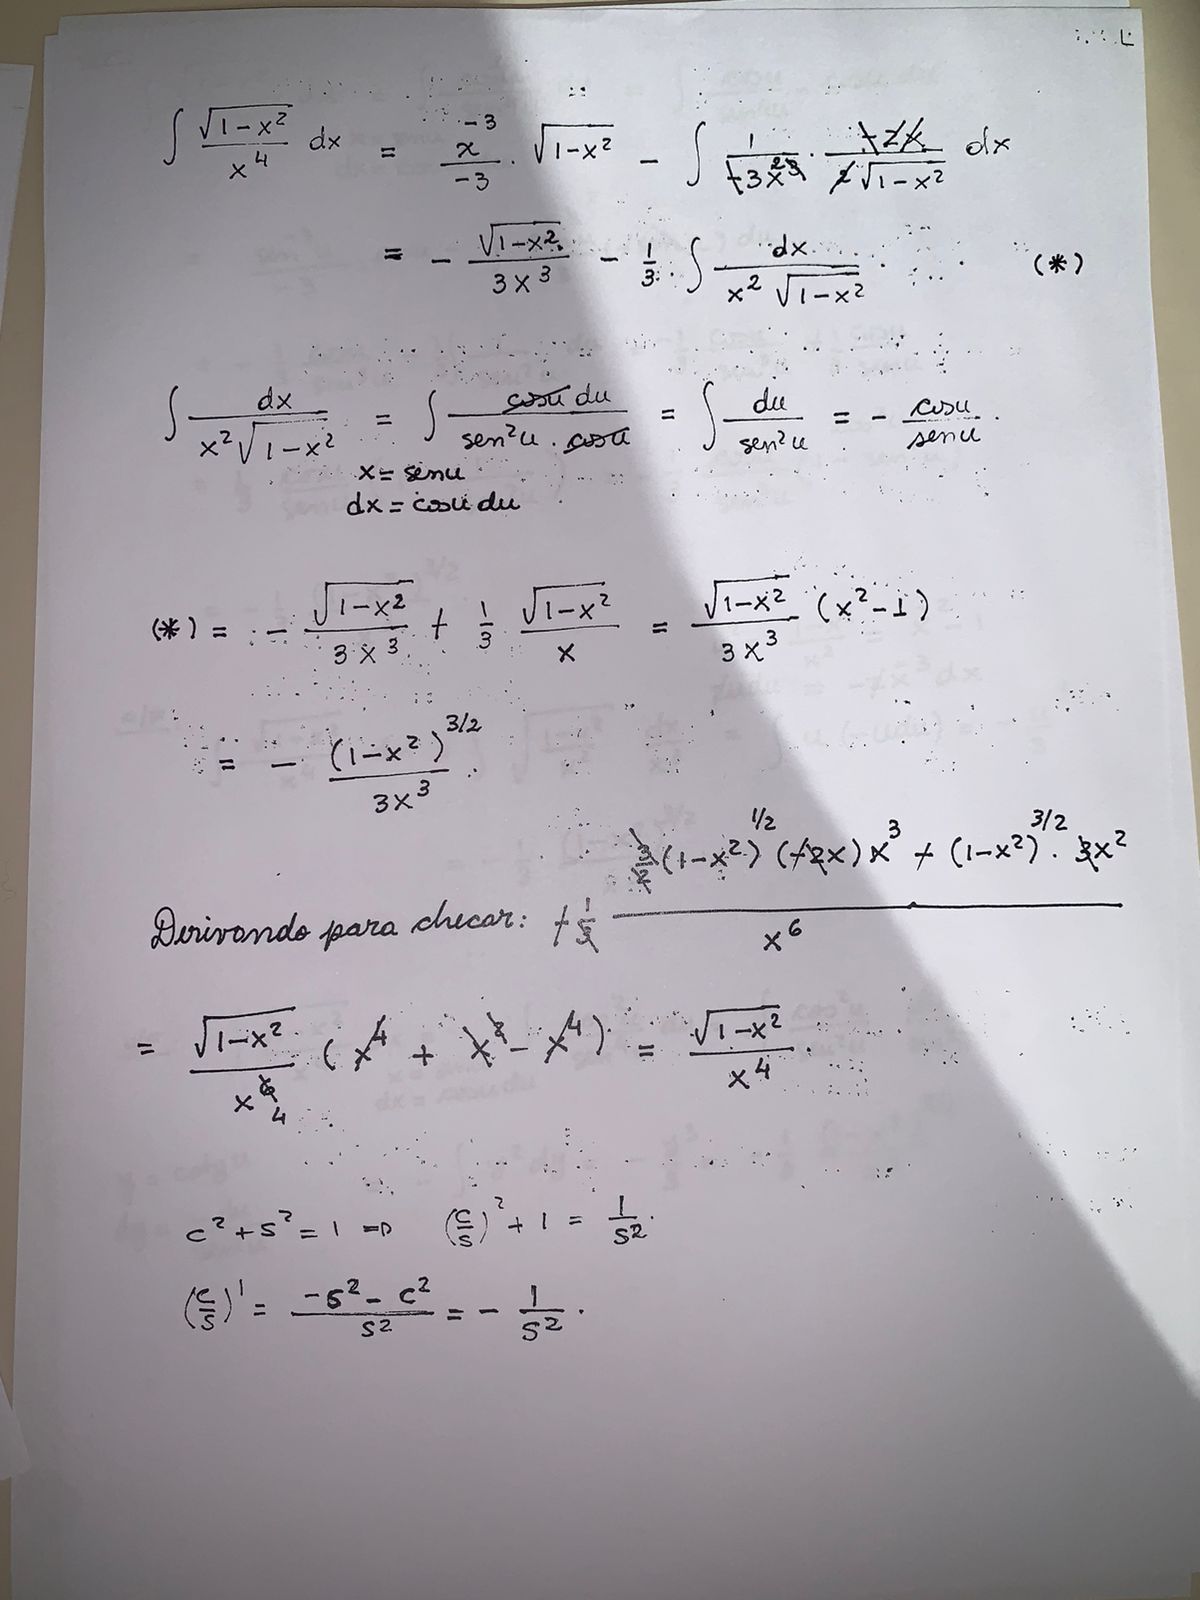 ∫ √(1-x²)/x⁴ dx = x⁻³/-3 · √(1-x²) - ∫ 1/(-3x³) · (-2x)/(2√(1-x²)) dx
= - √(1-x²)/(3x³) - 1/3 · ∫ dx/(x²√(1-x²)) (*)
∫ dx/(x²√(1-x²)) = ∫ cosu du/(sen²u · cosu) = ∫ du/sen²u = - cosu/senu.
x = senu
dx = cosu du
(*) = - √(1-x²)/(3x³) + 1/3 √(1-x²)/x = √(1-x²)/(3x³) (x²-1)
= - (1-x²)^(3/2)/(3x³).
Derivando para checar: +1/3 (3/2 (1-x²)^(1/2) (+2x) x³ + (1-x²)^(3/2) · 3x²)/x⁶
= √(1-x²)/x⁴ (x⁴ + x² - x⁴) = √(1-x²)/x⁴.
c² + s² = 1 ⇒ (c/s)² + 1 = 1/s².
(c/s)' = (-s² - c²)/s² = - 1/s².